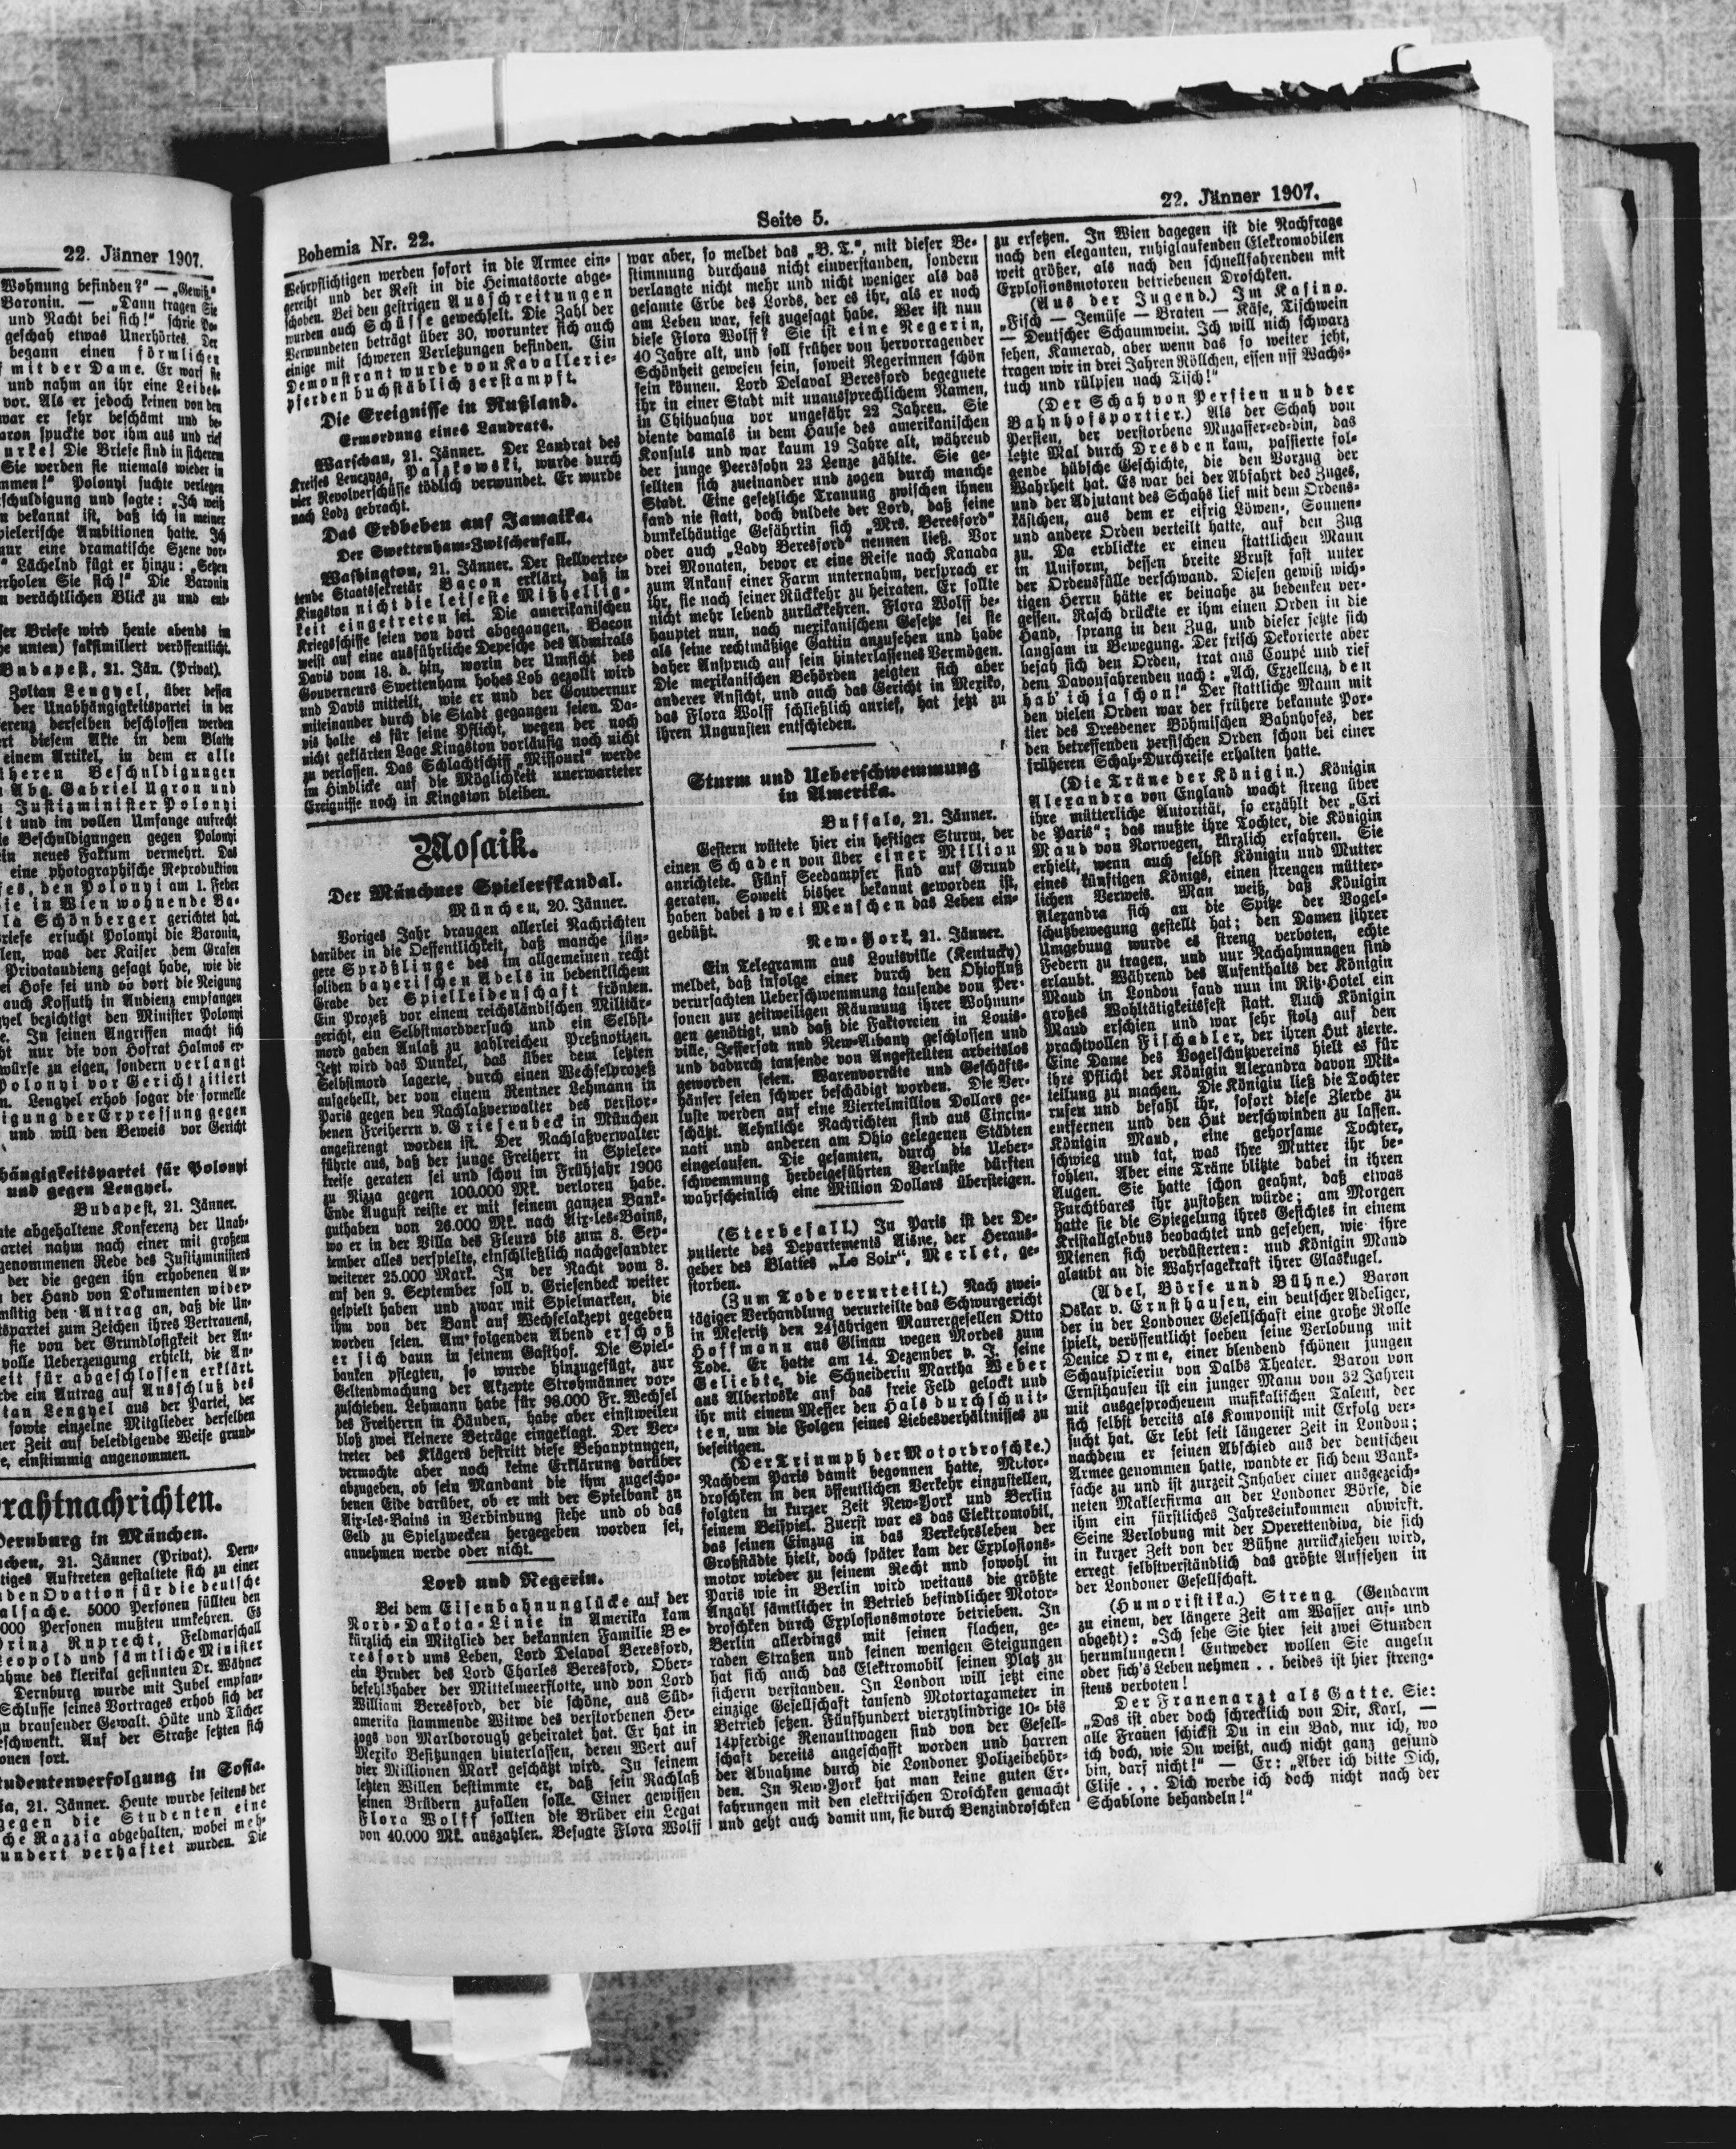 22. Jänner 1907.
Wohnung befinden?" — „Gewiß"
Baronin. — „Dann tragen Sie
und Nacht bei sich!" schrie Po-
geschah etwas Unerhörtes. Der
begann einen förmlichen
mit der Dame. Er warf sie
und nahm an ihr eine Leibes-
vor. Als er jedoch keinen von den
war er sehr beschämt und be-
aron spuckte vor ihm aus und rief
urke! Die Briefe sind in sicherem
Sie werden sie niemals wieder in
mmen!" Polonyi suchte verlegen
schuldigung und sagte: „Ich weiß
n bekannt ist, daß ich in meiner
pielerische Ambitionen hatte. Ich
nur eine dramatische Szene vor-
" Lächelnd fügt er hinzu: „Sehen
erholen Sie sich!" Die Baronin
n verächtlichen Blick zu und ent-
ser Briefe wird heute abends im
he unten) faksimiliert veröffentlicht.
Budapest, 21. Jän. (Privat).
Zoltan Lengyel, über dessen
der Unabhängigkeitspartei in der
ferenz derselben beschlossen werden
ert diesem Akte in dem Blatte
einem Artikel, in dem er alle
üheren Beschuldigungen
Abg. Gabriel Ugron und
Justizminister Polonyi
lt und im vollen Umfange aufrecht
ie Beschuldigungen gegen Polonyi
ein neues Faktum vermehrt. Das
eine photographische Reproduktion
fes, den Polonyi am 1. Feber
ie in Wien wohnende Ba-
la Schönberger gerichtet hat.
riefe ersucht Polonyi die Baronin,
len, was der Kaiser dem Grafen
Privataudienz gesagt habe, wie die
ei Hofe sei und ob dort die Neigung
auch Kossuth in Audienz empfangen
gyel bezichtigt den Minister Polonyi
e. In seinen Angriffen macht sich
ht nur die von Hofrat Halmos er-
würfe zu eigen, sondern verlangt
Polonyi vor Gericht zitiert
n. Lengyel erhob sogar die formelle
igung der Erpressung gegen
und will den Beweis vor Gericht
hängigkeitspartei für Polonyi
und gegen Lengyel.
Budapest, 21. Jänner.
ute abgehaltene Konferenz der Unab-
artei nahm nach einer mit großem
genommenen Rede des Justizministers
der die gegen ihn erhobenen An-
der Hand von Dokumenten wider-
mütig den Antrag an, daß die Un-
tspartei zum Zeichen ihres Vertrauens,
sie von der Grundlosigkeit der An-
volle Ueberzeugung erhielt, die An-
eit für abgeschlossen erklärt.
rde ein Antrag auf Ausschluß des
tan Lengyel aus der Partei, der
sowie einzelne Mitglieder derselben
er Zeit auf beleidigende Weise grund-
e, einstimmig angenommen.
rahtnachrichten.
Dernburg in München.
chen, 21. Jänner (Privat). Dern-
tiges Auftreten gestaltete sich zu einer
den Ovation für die deutsche
alsache. 5000 Personen füllten den
000 Personen mußten umkehren. Es
Prinz Ruprecht, Feldmarschall
eopold und sämtliche Minister
ahme des klerikal gesinnten Dr. Wähner
Dernburg wurde mit Jubel empfan-
Schlusse seines Vortrages erhob sich der
zu brausender Gewalt. Hüte und Tücher
eschwenkt. Auf der Straße setzten sich
onen fort.
tudentenverfolgung in Sofia.
ia, 21. Jänner. Heute wurde seitens der
gegen die Studenten eine
che Razzia abgehalten, wobei meh-
undert verhaftet wurden. Die
Bohemia Nr. 22.
Seite 5.
22. Jänner 1907.
Wehrpflichtigen werden sofort in die Armee ein-
gereiht und der Rest in die Heimatsorte abge-
schoben. Bei den gestrigen Ausschreitungen
wurden auch Schüsse gewechselt. Die Zahl der
Verwundeten beträgt über 30, worunter sich auch
einige mit schweren Verletzungen befinden. Ein
Demonstrant wurde von Kavallerie-
pferden buchstäblich zerstampft.
Die Ereignisse in Rußland.
Ermordung eines Landrats.
Warschau, 21. Jänner. Der Landrat des
Kreises Lenczyza, Palzkowski, wurde durch
vier Revolverschüsse tödlich verwundet. Er wurde
nach Lodz gebracht.
Das Erdbeben auf Jamaika.
Der Swettenham-Zwischenfall.
Washington, 21. Jänner. Der stellvertre-
tende Staatssekretär Bacon erklärt, daß in
Kingston nicht die leiseste Mißhellig-
keit eingetreten sei. Die amerikanischen
Kriegsschiffe seien von dort abgegangen. Bacon
weist auf eine ausführliche Depesche des Admirals
Davis vom 18. d. hin, worin der Umsicht des
Gouverneurs Swettenham hohes Lob gezollt wird
und Davis mitteilt, wie er und der Gouvernur
miteinander durch die Stadt gegangen seien. Da-
vis halte es für seine Pflicht, wegen der noch
nicht geklärten Lage Kingston vorläufig noch nicht
zu verlassen. Das Schlachtschiff „Missouri" werde
im Hinblicke auf die Möglichkeit unerwarteter
Ereignisse noch in Kingston bleiben.
Mosaik.
Der Münchner Spielerskandal.
München, 20. Jänner.
Voriges Jahr drangen allerlei Nachrichten
darüber in die Oeffentlichkeit, daß manche jün-
gere Sprößlinge des im allgemeinen recht
soliden bayerischen Adels in bedenklichem
Grade der Spielleidenschaft frönten.
Ein Prozeß vor einem reichsländischen Militär-
gericht, ein Selbstmordversuch und ein Selbst-
mord gaben Anlaß zu zahlreichen Preßnotizen.
Jetzt wird das Dunkel, das über dem letzten
Selbstmord lagerte, durch einen Wechselprozeß
aufgehellt, der von einem Rentner Lehmann in
Paris gegen den Nachlaßverwalter des verstor-
benen Freiherrn v. Griesenbeck in München
angestrengt worden ist. Der Nachlaßverwalter
führte aus, daß der junge Freiherr in Spieler-
kreise geraten sei und schon im Frühjahr 1906
zu Nizza gegen 100.000 Mk. verloren habe.
Ende August reiste er mit seinem ganzen Bank-
guthaben von 26.000 Mk. nach Aix-les-Bains,
wo er in der Villa des Fleurs bis zum 8. Sep-
tember alles verspielte, einschließlich nachgesandter
weiterer 25.000 Mark. In der Nacht vom 8.
auf den 9. September soll v. Griesenbeck weiter
gespielt haben und zwar mit Spielmarken, die
ihm von der Bank auf Wechselakzept gegeben
worden seien. Am folgenden Abend erschoß
er sich dann in seinem Gasthof. Die Spiel-
banken pflegten, so wurde hinzugefügt, zur
Geltendmachung der Akzepte Strohmänner vor-
zuschieben. Lehmann habe für 98.000 Fr. Wechsel
des Freiherrn in Händen, habe aber einstweilen
bloß zwei kleinere Beträge eingeklagt. Der Ver-
treter des Klägers bestritt diese Behauptungen,
vermochte aber noch keine Erklärung darüber
abzugeben, ob sein Mandant die ihm zugescho-
benen Eide darüber, ob er mit der Spielbank zu
Aix-les-Bains in Verbindung stehe und ob das
Geld zu Spielzwecken hergegeben worden sei,
annehmen werde oder nicht.
Lord und Negerin.
Bei dem Eisenbahnunglücke auf der
Nord-Dakota-Linie in Amerika kam
kürzlich ein Mitglied der bekannten Familie Be-
resford ums Leben, Lord Delaval Beresford,
ein Bruder des Lord Charles Beresford, Ober-
befehlshaber der Mittelmeerflotte, und von Lord
William Beresford, der die schöne, aus Süd-
amerika stammende Witwe des verstorbenen Her-
zogs von Marlborough geheiratet hat. Er hat in
Mexiko Besitzungen hinterlassen, deren Wert auf
vier Millionen Mark geschätzt wird. In seinem
letzten Willen bestimmte er, daß sein Nachlaß
seinen Brüdern zufallen solle. Einer gewissen
Flora Wolff sollten die Brüder ein Legat
von 40.000 Mk. auszahlen. Besagte Flora Wolff
war aber, so meldet das „B. T.", mit dieser Be-
stimmung durchaus nicht einverstanden, sondern
verlangte nicht mehr und nicht weniger als das
gesamte Erbe des Lords, der es ihr, als er noch
am Leben war, fest zugesagt habe. Wer ist nun
diese Flora Wolff? Sie ist eine Negerin,
40 Jahre alt, und soll früher von hervorragender
Schönheit gewesen sein, soweit Negerinnen schön
sein können. Lord Delaval Beresford begegnete
ihr in einer Stadt mit unaussprechlichem Namen,
in Chihuahua vor ungefähr 22 Jahren. Sie
diente damals in dem Hause des amerikanischen
Konsuls und war kaum 19 Jahre alt, während
der junge Peerssohn 23 Lenze zählte. Sie ge-
sellten sich zueinander und zogen durch manche
Stadt. Eine gesetzliche Trauung zwischen ihnen
fand nie statt, doch duldete der Lord, daß seine
dunkelhäutige Gefährtin sich „Mrs. Beresford"
oder auch „Lady Beresford" nennen ließ. Vor
drei Monaten, bevor er eine Reise nach Kanada
zum Ankauf einer Farm unternahm, versprach er
ihr, sie nach seiner Rückkehr zu heiraten. Er sollte
nicht mehr lebend zurückkehren. Flora Wolff be-
hauptet nun, nach mexikanischem Gesetze sei sie
als seine rechtmäßige Gattin anzusehen und habe
daher Anspruch auf sein hinterlassenes Vermögen.
Die mexikanischen Behörden zeigten sich aber
anderer Ansicht, und auch das Gericht in Mexiko,
das Flora Wolff schließlich anrief, hat jetzt zu
ihren Ungunsten entschieden.
Sturm und Ueberschwemmung
in Amerika.
Buffalo, 21. Jänner.
Gestern wütete hier ein heftiger Sturm, der
einen Schaden von über einer Million
anrichtete. Fünf Seedampfer sind auf Grund
geraten. Soweit bisher bekannt geworden ist,
haben dabei zwei Menschen das Leben ein-
gebüßt.
New-York, 21. Jänner.
Ein Telegramm aus Louisville (Kentucky)
meldet, daß infolge einer durch den Ohiofluß
verursachten Ueberschwemmung tausende von Per-
sonen zur zeitweiligen Räumung ihrer Wohnun-
gen genötigt, und daß die Faktoreien in Louis-
ville, Jefferson und New-Albany geschlossen und
und dadurch tausende von Angestellten arbeitslos
geworden seien. Warenvorräte und Geschäfts-
häuser seien schwer beschädigt worden. Die Ver-
luste werden auf eine Viertelmillion Dollars ge-
schätzt. Aehnliche Nachrichten sind aus Cincin-
nati und anderen am Ohio gelegenen Städten
eingelaufen. Die gesamten, durch die Ueber-
schwemmung herbeigeführten Verluste dürften
wahrscheinlich eine Million Dollars übersteigen.
(Sterbefall.) In Paris ist der De-
putierte des Departements Aisne, der Heraus-
geber des Blattes „Le Soir", Merlet, ge-
storben.
(Zum Tode verurteilt.) Nach zwei-
tägiger Verhandlung verurteilte das Schwurgericht
in Meseritz den 24jährigen Maurergesellen Otto
Hoffmann aus Glinau wegen Mordes zum
Tode. Er hatte am 14. Dezember v. J. seine
Geliebte, die Schneiderin Martha Weber
aus Albertoske auf das freie Feld gelockt und
ihr mit einem Messer den Hals durchschnit-
ten, um die Folgen seines Liebesverhältnisses zu
beseitigen.
(Der Triumph der Motordroschke.)
Nachdem Paris damit begonnen hatte, Motor-
droschken in den öffentlichen Verkehr einzustellen,
folgten in kurzer Zeit New-York und Berlin
seinem Beispiel. Zuerst war es das Elektromobil,
das seinen Einzug in das Verkehrsleben der
Großstädte hielt, doch später kam der Explosions-
motor wieder zu seinem Recht und sowohl in
Paris wie in Berlin wird weitaus die größte
Anzahl sämtlicher in Betrieb befindlicher Motor-
droschken durch Explosionsmotore betrieben. In
Berlin allerdings mit seinen flachen, ge-
raden Straßen und seinen wenigen Steigungen
hat sich auch das Elektromobil seinen Platz zu
sichern verstanden. In London will jetzt eine
einzige Gesellschaft tausend Motortaxameter in
Betrieb setzen. Fünfhundert vierzylindrige 10- bis
14pferdige Renaultwagen sind von der Gesell-
schaft bereits angeschafft worden und harren
der Abnahme durch die Londoner Polizeibehör-
den. In New-York hat man keine guten Er-
fahrungen mit den elektrischen Droschken gemacht
und geht auch damit um, sie durch Benzindroschken
zu ersetzen. In Wien dagegen ist die Nachfrage
nach den eleganten, ruhiglaufenden Elekromobilen
weit größer, als nach den schnellfahrenden mit
Explosionsmotoren betriebenen Droschken.
(Aus der Jugend.) Im Kasino.
„Fisch — Jemüse — Braten — Käse, Tischwein
— Deutscher Schaumwein. Ich will nich schwarz
sehen, Kamerad, aber wenn das so weiter jeht,
tragen wir in drei Jahren Röllchen, essen uff Wachs-
tuch und rülpsen nach Tisch!"
(Der Schah von Persien und der
Bahnhofsportier.) Als der Schah von
Persien, der verstorbene Muzaffer-ed-din, das
letzte Mal durch Dresden kam, passierte fol-
gende hübsche Geschichte, die den Vorzug der
Wahrheit hat. Es war bei der Abfahrt des Zuges,
und der Adjutant des Schahs lief mit dem Ordens-
kästchen, aus dem er eifrig Löwen-, Sonnen-
und andere Orden verteilt hatte, auf den Zug
zu. Da erblickte er einen stattlichen Mann
in Uniform, dessen breite Brust fast unter
der Ordensfülle verschwand. Diesen gewiß wich-
tigen Herrn hätte er beinahe zu bedenken ver-
gessen. Rasch drückte er ihm einen Orden in die
Hand, sprang in den Zug, und dieser setzte sich
langsam in Bewegung. Der frisch Dekorierte aber
besah sich den Orden, trat ans Coupé und rief
dem Davonfahrenden nach: „Ach, Exzellenz, den
hab' ich ja schon!" Der stattliche Mann mit
den vielen Orden war der frühere bekannte Por-
tier des Dresdener Böhmischen Bahnhofes, der
den betreffenden persischen Orden schon bei einer
früheren Schah-Durchreise erhalten hatte.
(Die Träne der Königin.) Königin
Alexandra von England wacht streng über
ihre mütterliche Autorität, so erzählt der „Cri
de Paris"; das mußte ihre Tochter, die Königin
Maud von Norwegen, kürzlich erfahren. Sie
erhielt, wenn auch selbst Königin und Mutter
eines künftigen Königs, einen strengen mütter-
lichen Verweis. Man weiß, daß Königin
Alexandra sich an die Spitze der Vogel-
schutzbewegung gestellt hat; den Damen ihrer
Umgebung wurde es streng verboten, echte
Federn zu tragen, und nur Nachahmungen sind
erlaubt. Während des Aufenthalts der Königin
Maud in London fand nun im Ritz-Hotel ein
großes Wohltätigkeitsfest statt. Auch Königin
Maud erschien und war sehr stolz auf den
prachtvollen Fischadler, der ihren Hut zierte.
Eine Dame des Vogelschutzvereins hielt es für
ihre Pflicht der Königin Alexandra davon Mit-
teilung zu machen. Die Königin ließ die Tochter
rufen und befahl ihr, sofort diese Zierde zu
entfernen und den Hut verschwinden zu lassen.
Königin Maud, eine gehorsame Tochter,
schwieg und tat, was ihre Mutter ihr be-
fohlen. Aber eine Träne blitzte dabei in ihren
Augen. Sie hatte schon geahnt, daß etwas
Furchtbares ihr zustoßen würde; am Morgen
hatte sie die Spiegelung ihres Gesichtes in einem
Kristallglobus beobachtet und gesehen, wie ihre
Mienen sich verdüsterten: und Königin Maud
glaubt an die Wahrsagekraft ihrer Glaskugel.
(Adel, Börse und Bühne.) Baron
Oskar v. Ernsthausen, ein deutscher Adeliger,
der in der Londoner Gesellschaft eine große Rolle
spielt, veröffentlicht soeben seine Verlobung mit
Denice Orme, einer blendend schönen jungen
Schauspielerin von Dalbs Theater. Baron von
Ernsthausen ist ein junger Mann von 32 Jahren
mit ausgesprochenem musikalischen Talent, der
sich selbst bereits als Komponist mit Erfolg ver-
sucht hat. Er lebt seit längerer Zeit in London;
nachdem er seinen Abschied aus der deutschen
Armee genommen hatte, wandte er sich dem Bank-
fache zu und ist zurzeit Inhaber einer ausgezeich-
neten Maklerfirma an der Londoner Börse, die
ihm ein fürstliches Jahreseinkommen abwirft.
Seine Verlobung mit der Operettendiva, die sich
in kurzer Zeit von der Bühne zurückziehen wird,
erregt selbstverständlich das größte Aufsehen in
der Londoner Gesellschaft.
(Humoristika.) Streng (Gendarm
zu einem, der längere Zeit am Wasser auf- und
abgeht): „Ich sehe Sie hier seit zwei Stunden
herumlungern! Entweder wollen Sie angeln
oder sich's Leben nehmen . . beides ist hier streng-
stens verboten!
Der Frauenarzt als Gatte. Sie:
„Das ist aber doch schrecklich von Dir, Karl, —
alle Frauen schickst Du in ein Bad, nur ich, wo
ich doch, wie Du weißt, auch nicht ganz gesund
bin, darf nicht!" — Er: „Aber ich bitte Dich,
Elise . . . Dich werde ich doch nicht nach der
Schablone behandeln!"